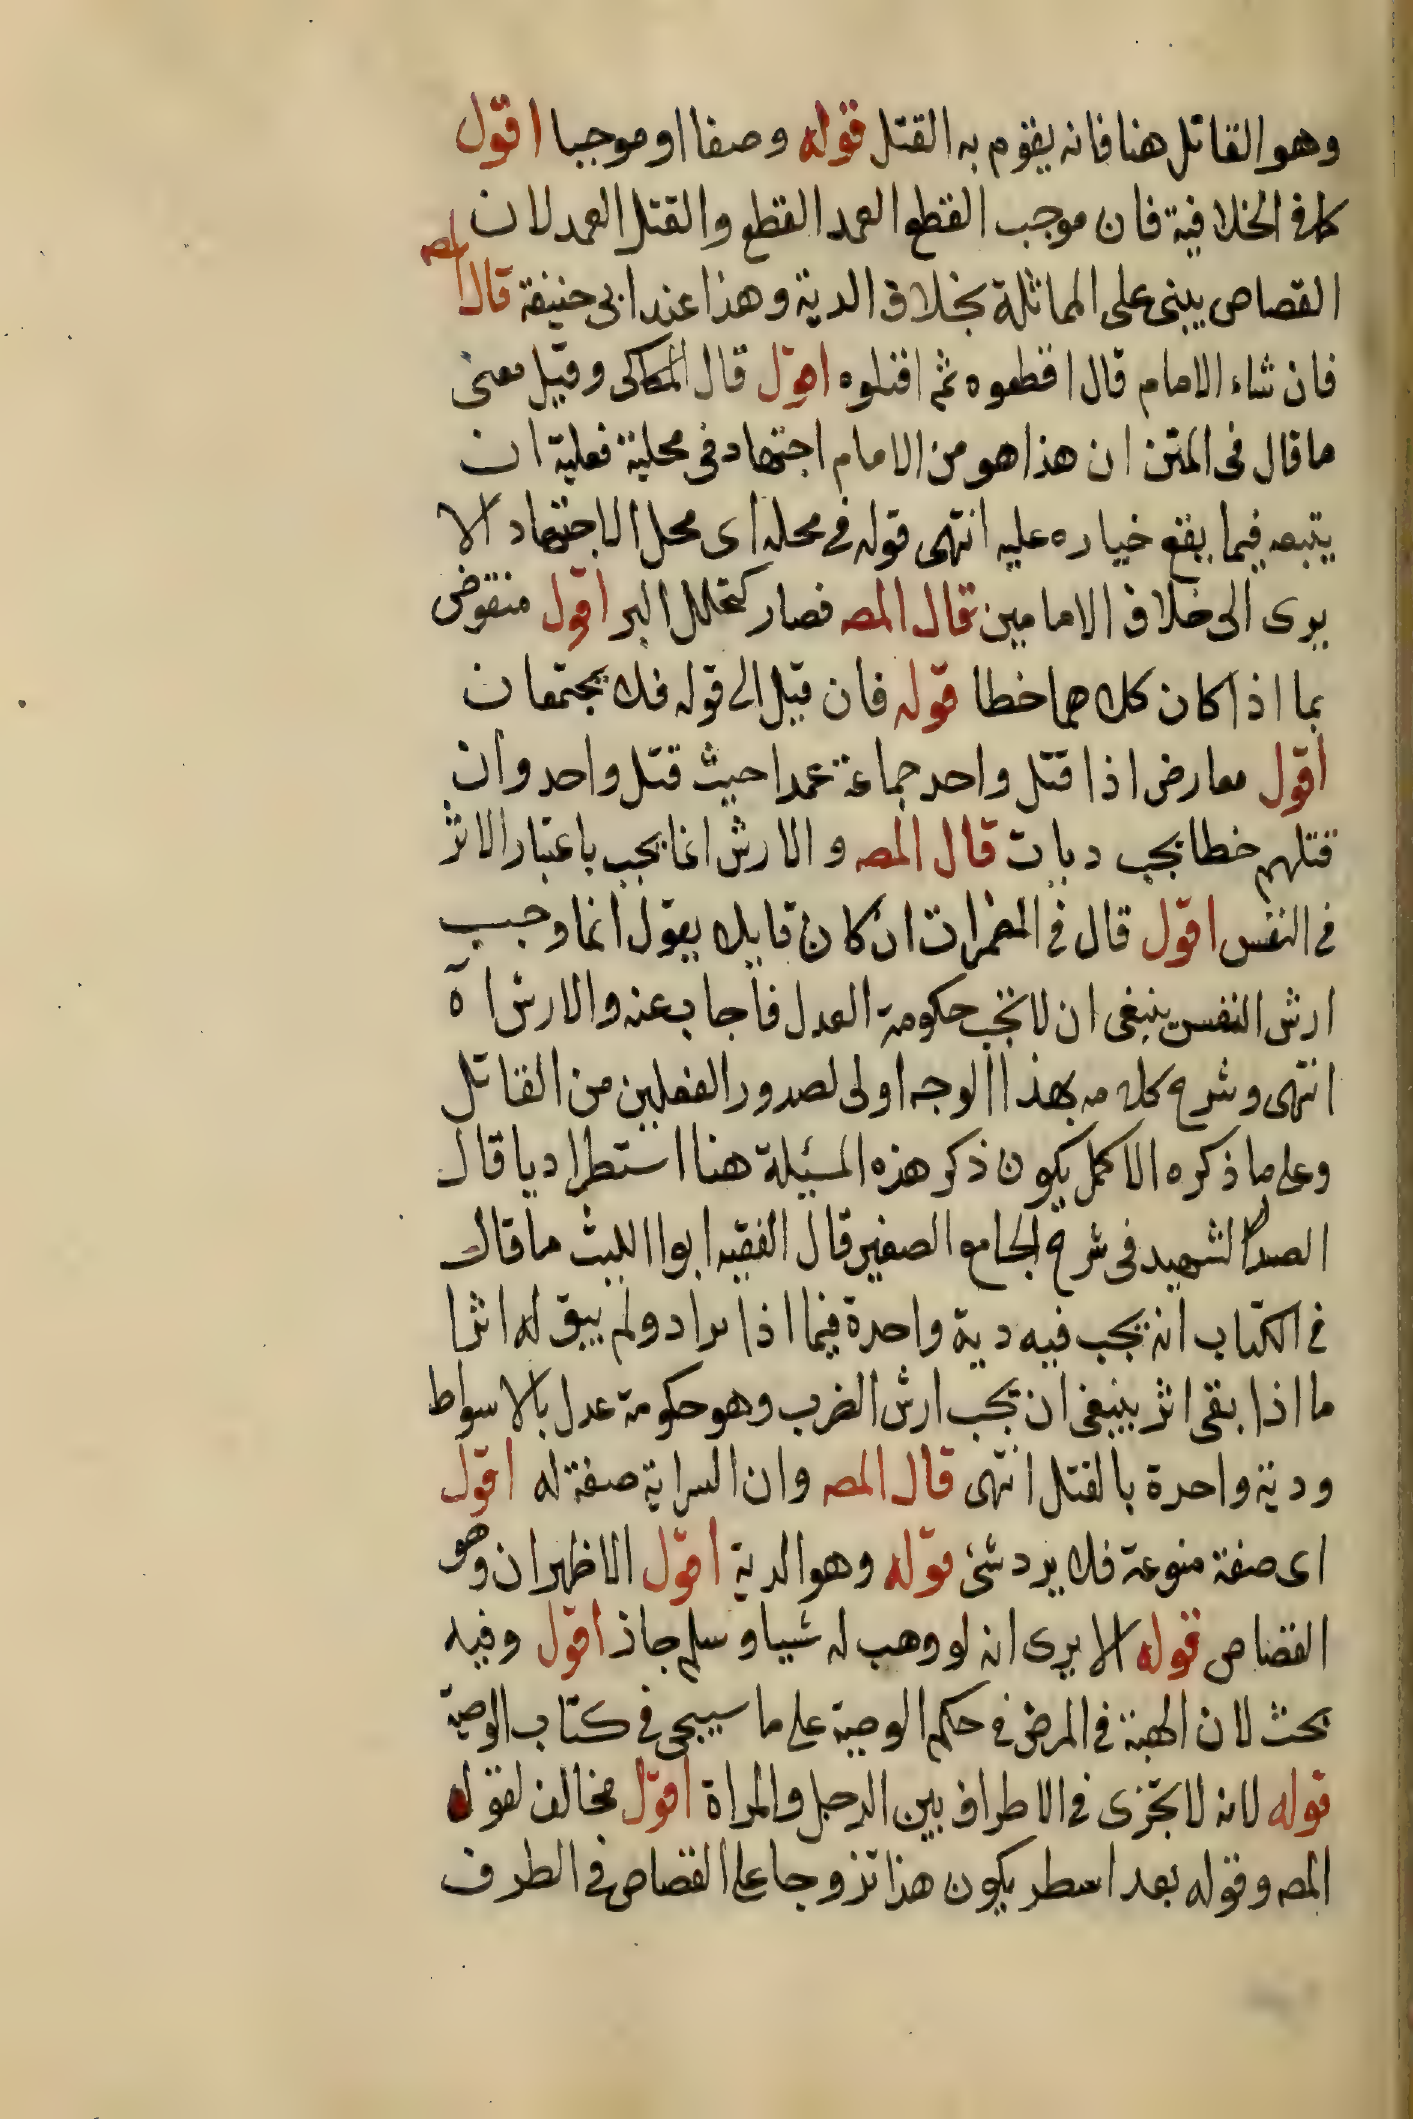 وهو القاتل هنا فانه يقوم به القتل قوله وصفا او موجبا اقول
كما فى الخلافية فان موجب القطع العمد القطع والقتل العمد لان
القصاص يبنى على المماثلة بخلاف الدية وهذا عند ابى حنيفة قال المصه
فان شاء الامام قال اقطعوه ثم اقتلوه اقول قال الكاكى وقيل معنى
ما قال فى المتن ان هذا هو من الامام اجتهاد فى محلية فعلية ان
يتبعه فيما يقع خياره عليه انتهى قوله فى محله اى محل الاجتهاد الا
يرى الى خلاف الامامين قال المصه فصار كتخلل البر اقول منقوض
بما اذا كان كلاهما خطا قوله فان قيل الى قوله فلا يجتمعان
اقول معارض اذا قتل واحد جماعة عمدا حيث قتل واحد وان
قتلهم خطا يجب ديات قال المصه والارش انما يجب باعتبار الاثر
فى النفس اقول قال فى المضمرات ان كان قايلا يقول انما وجب
ارش النفس ينبغى ان لا تجب حكومة العدل فاجاب عنه والارش اه
انتهى وشرح كلامه بهذا الوجه اولى لصدور الفعلين من القاتل
وعلى ما ذكره الاكمل يكون ذكر هذه المسئلة هنا استطراديا قال
الصدر الشهيد فى شرح الجامع الصغير قال الفقيه ابوا الليث ما قال
فى الكتاب انه يجب فيه دية واحدة فيما اذا برا ولم يبق له اثرا
ما اذا بقى اثر ينبغى ان تجب ارش الضرب وهو حكومة عدل بالاسواط
ودية واحدة بالقتل انتهى قال المصه وان السراية صفة له اقول
اى صفة منوعة فلا يرد شئ قوله وهو الدية اقول الاظهر ان وهو
القصاص قوله الا يرى انه لو وهب له شيا وسلم جاز اقول وفيه
بحث لان الهبة فى المرض فى حكم الوصية على ما سيجى فى كتاب الوصية
قوله لانه لا تجزى فى الاطراف بين الرجل والمراة اقول مخالف لقوله
المصه وقوله بعد اسطر يكون هذا تزوجا على القصاص فى الطرف